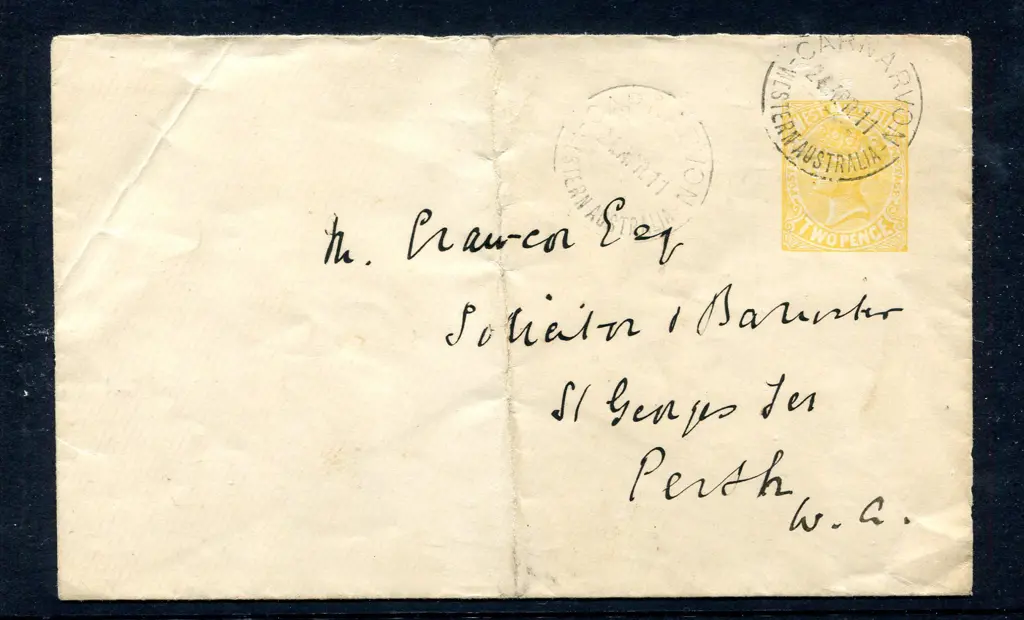 CARNARVON
24.AP.11
WESTERN AUSTRALIA
TWO PENCE
WESTERN AUSTRALIA
M. Crawcor Esq
Solicitor & Barrister
St Georges Ter
Perth
W. A.